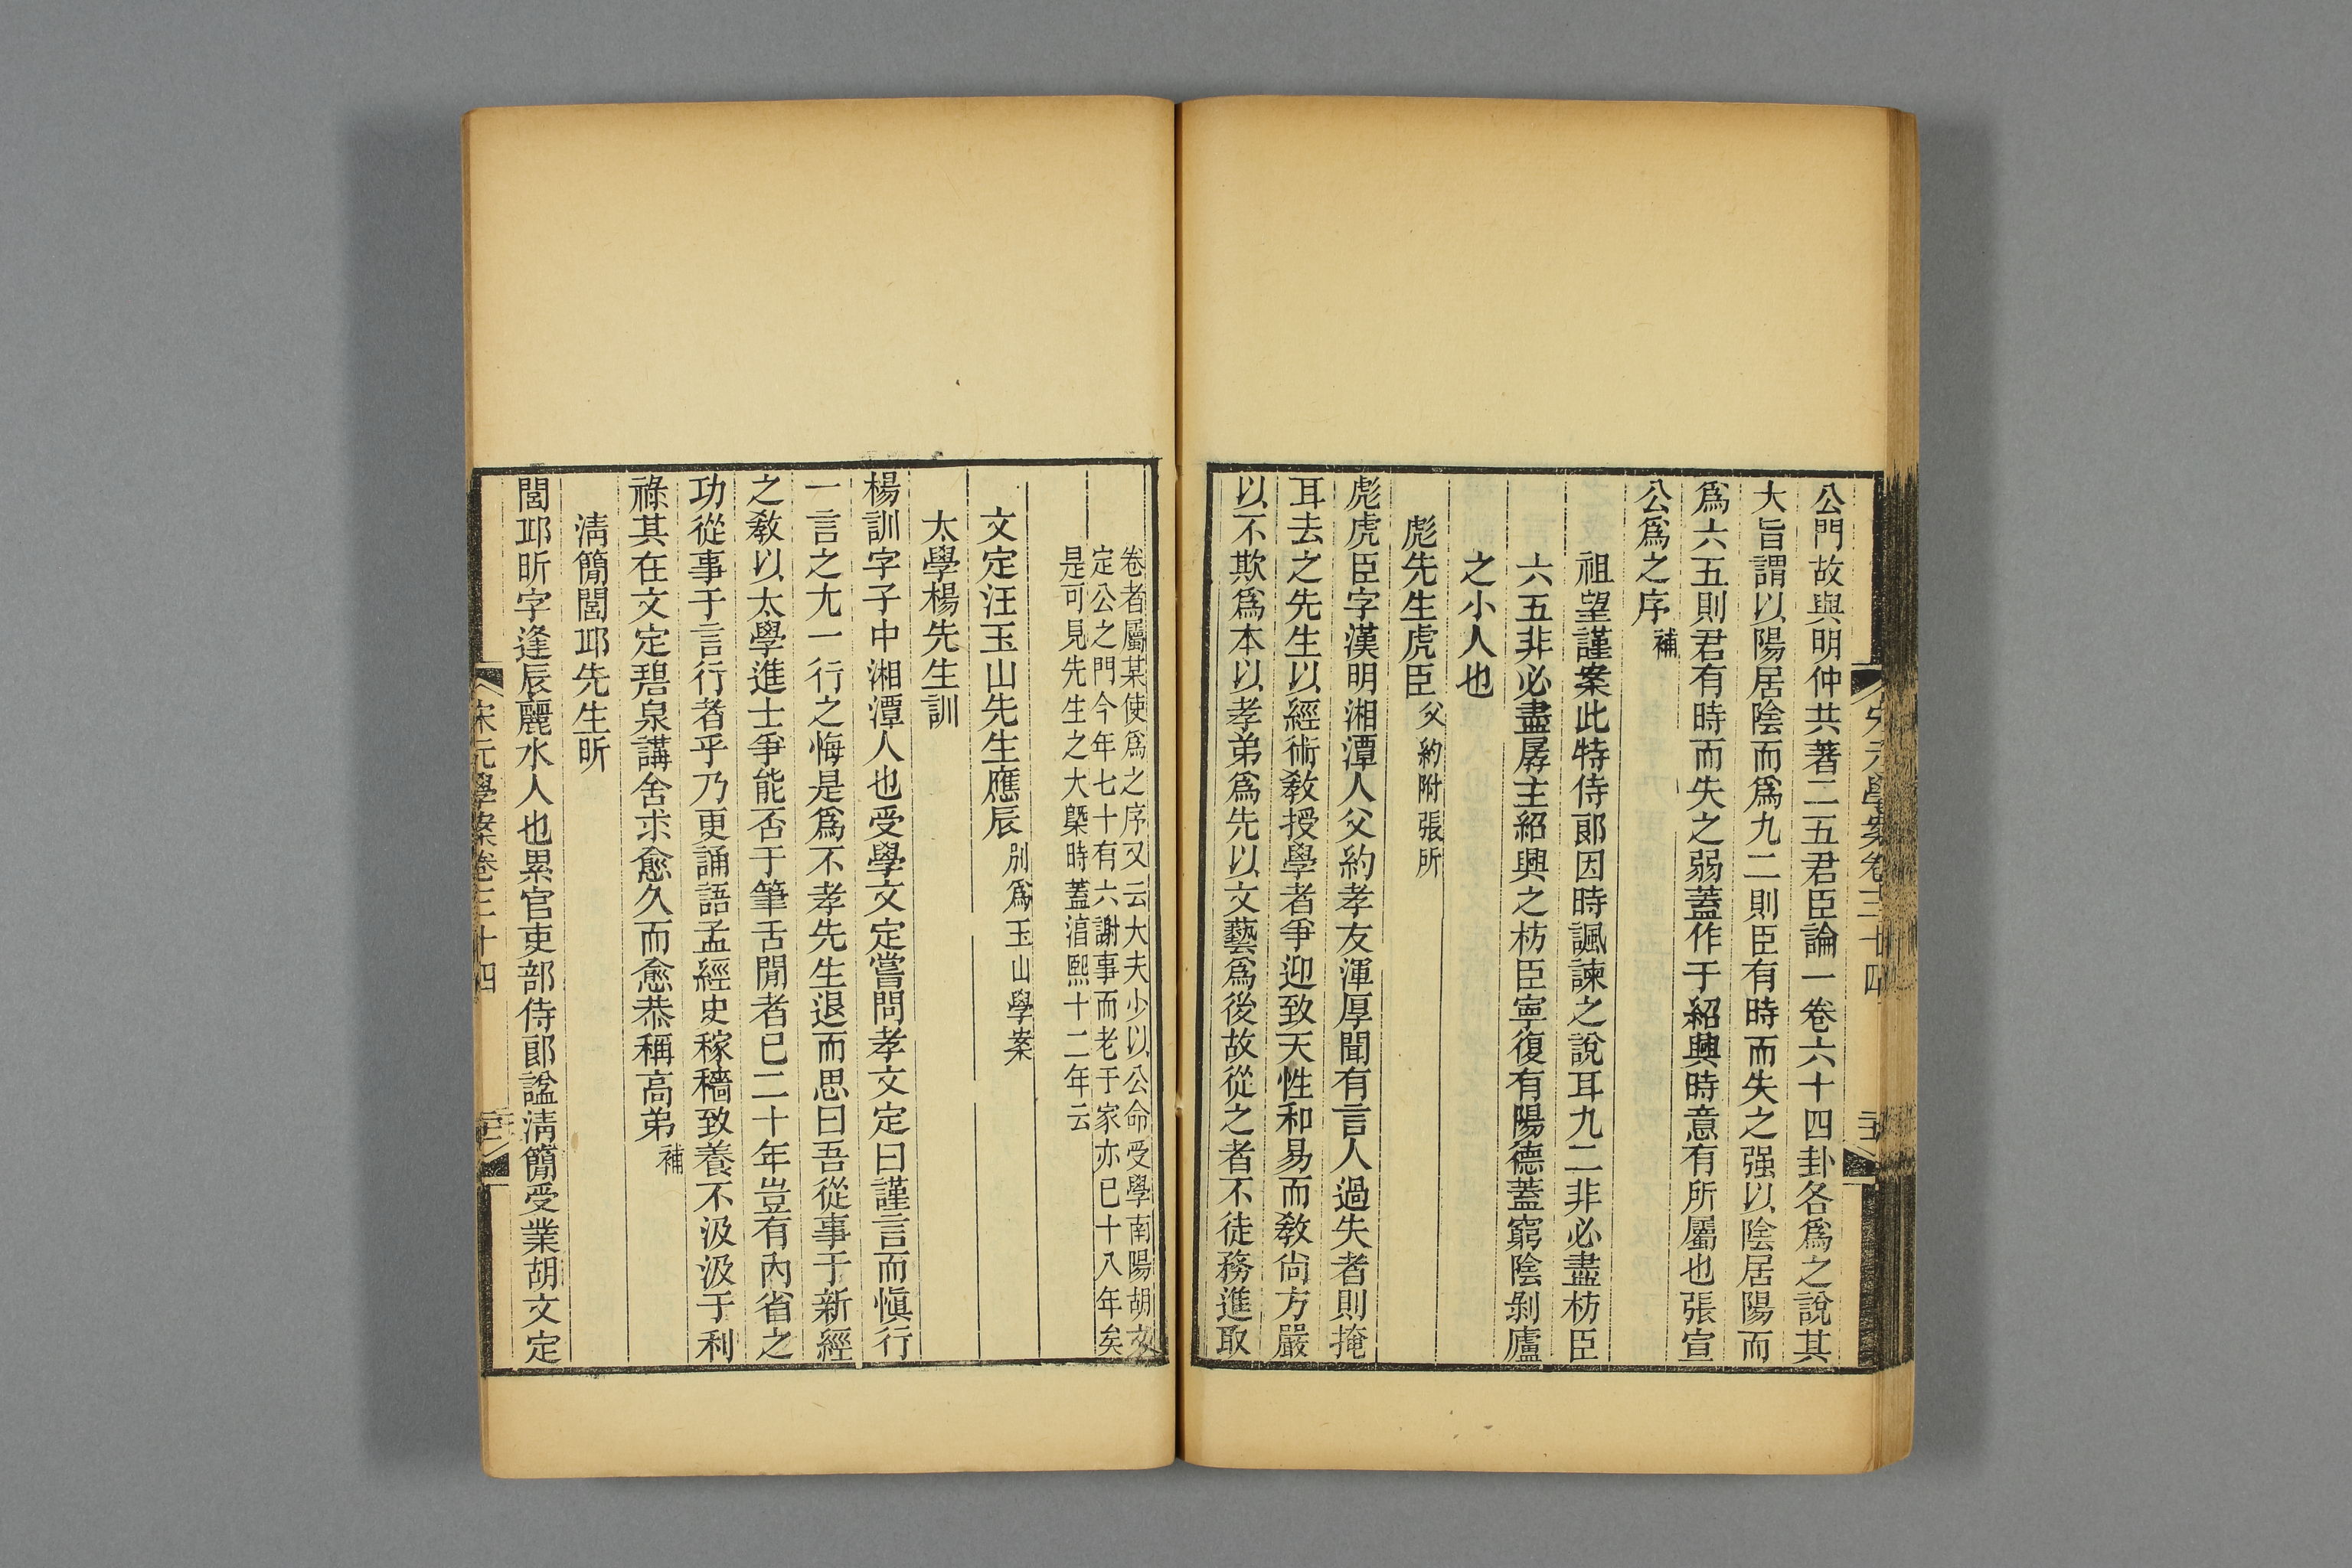 公門故與明仲共著二五君臣論一卷六十四卦各爲之說其
大旨謂以陽居陰而爲九二則臣有時而失之强以陰居陽而
爲六五則君有時而失之弱蓋作于紹興時意有所屬也張宣
公爲之序補
祖望謹案此特侍郎因時諷諫之說耳九二非必盡枋臣
六五非必盡孱主紹興之枋臣寧復有陽德蓋窮陰剝廬
之小人也
彪先生虎臣父約附張所
彪虎臣字漢明湘潭人父約孝友渾厚聞有言人過失者則掩
耳去之先生以經術敎授學者爭迎致天性和易而敎尙方嚴
以不欺爲本以孝弟爲先以文藝爲後故從之者不徒務進取
卷者屬某使爲之序又云大夫少以公命受學南陽胡文
定公之門今年七十有六謝事而老于家亦已十八年矣
是可見先生之大槩時蓋淳熙十二年云
文定汪玉山先生應辰別爲玉山學案
太學楊先生訓
楊訓字子中湘潭人也受學文定嘗問孝文定曰謹言而愼行
一言之尢一行之悔是爲不孝先生退而思曰吾從事于新經
之敎以太學進士爭能否于筆舌閒者已二十年豈有內省之
功從事于言行者乎乃更誦語孟經史稼穡致養不汲汲于利
祿其在文定碧泉講舍求愈久而愈恭稱高弟補
清簡閭邱先生昕
閭邱昕字逢辰麗水人也累官吏部侍郎諡清簡受業胡文定
宋元學案卷三十四